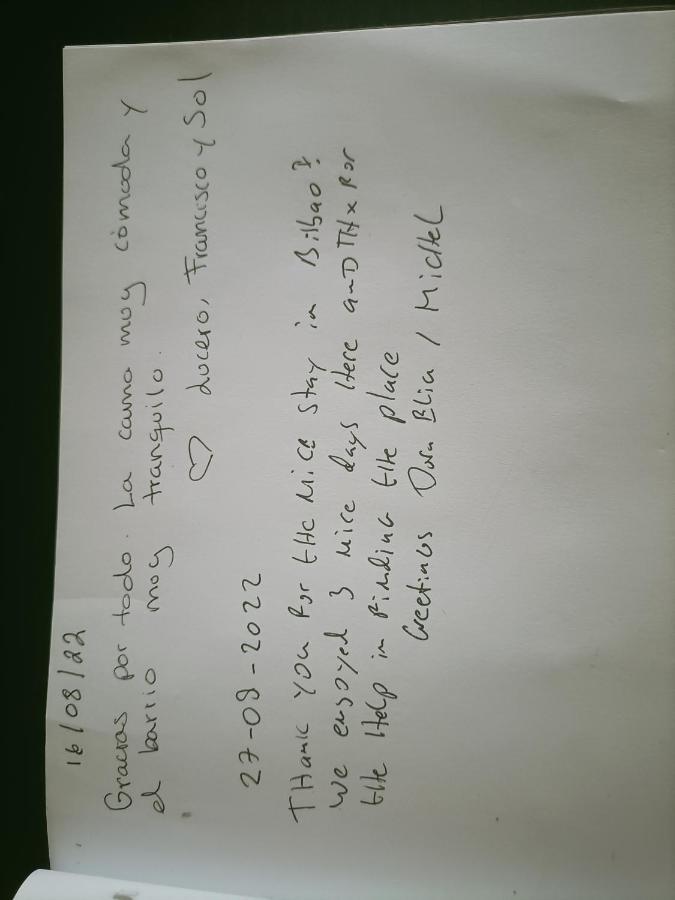 16/08/22
Gracias por todo. La cama muy cómoda y
el barrio muy tranquilo.
♡ Lucero, Francisco y Sol
27-08-2022
THank you For tHe Nice stay in Bilbao!
We enjoyed 3 Nice days Here anD THx For
tHe Help in Finding tHe place
Greetings / MicHel